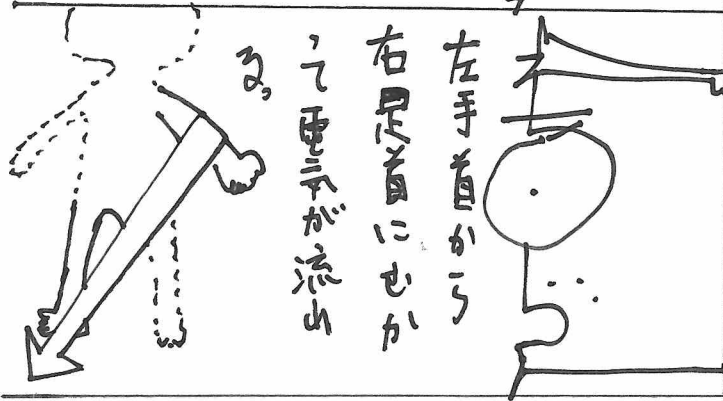 左手首から
右足首にむか
って電気が流れ
る。